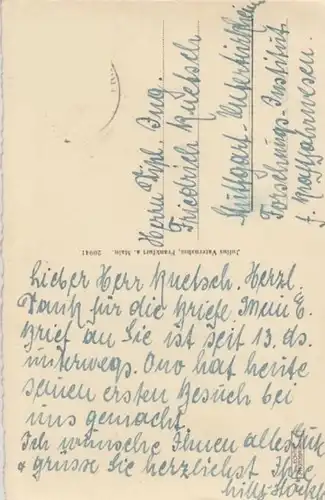 Herrn Dipl. Ing.
Friedrich Kuetsch
Stuttgart-Untertürkheim
Forschungs-Institut
f. Kraftfahrwesen.
Julius Vaternahm, Frankfurt a. Main. 20941
Lieber Herr Kuetsch. Herzl.
Dank für die Briefe. Mein E.
Brief an Sie ist seit 13. ds.
unterwegs. Ono hat heute
seinen ersten Besuch bei
uns gemacht.
Ich wünsche Ihnen alles Gute
+ grüsse Sie herzlichst Ihre